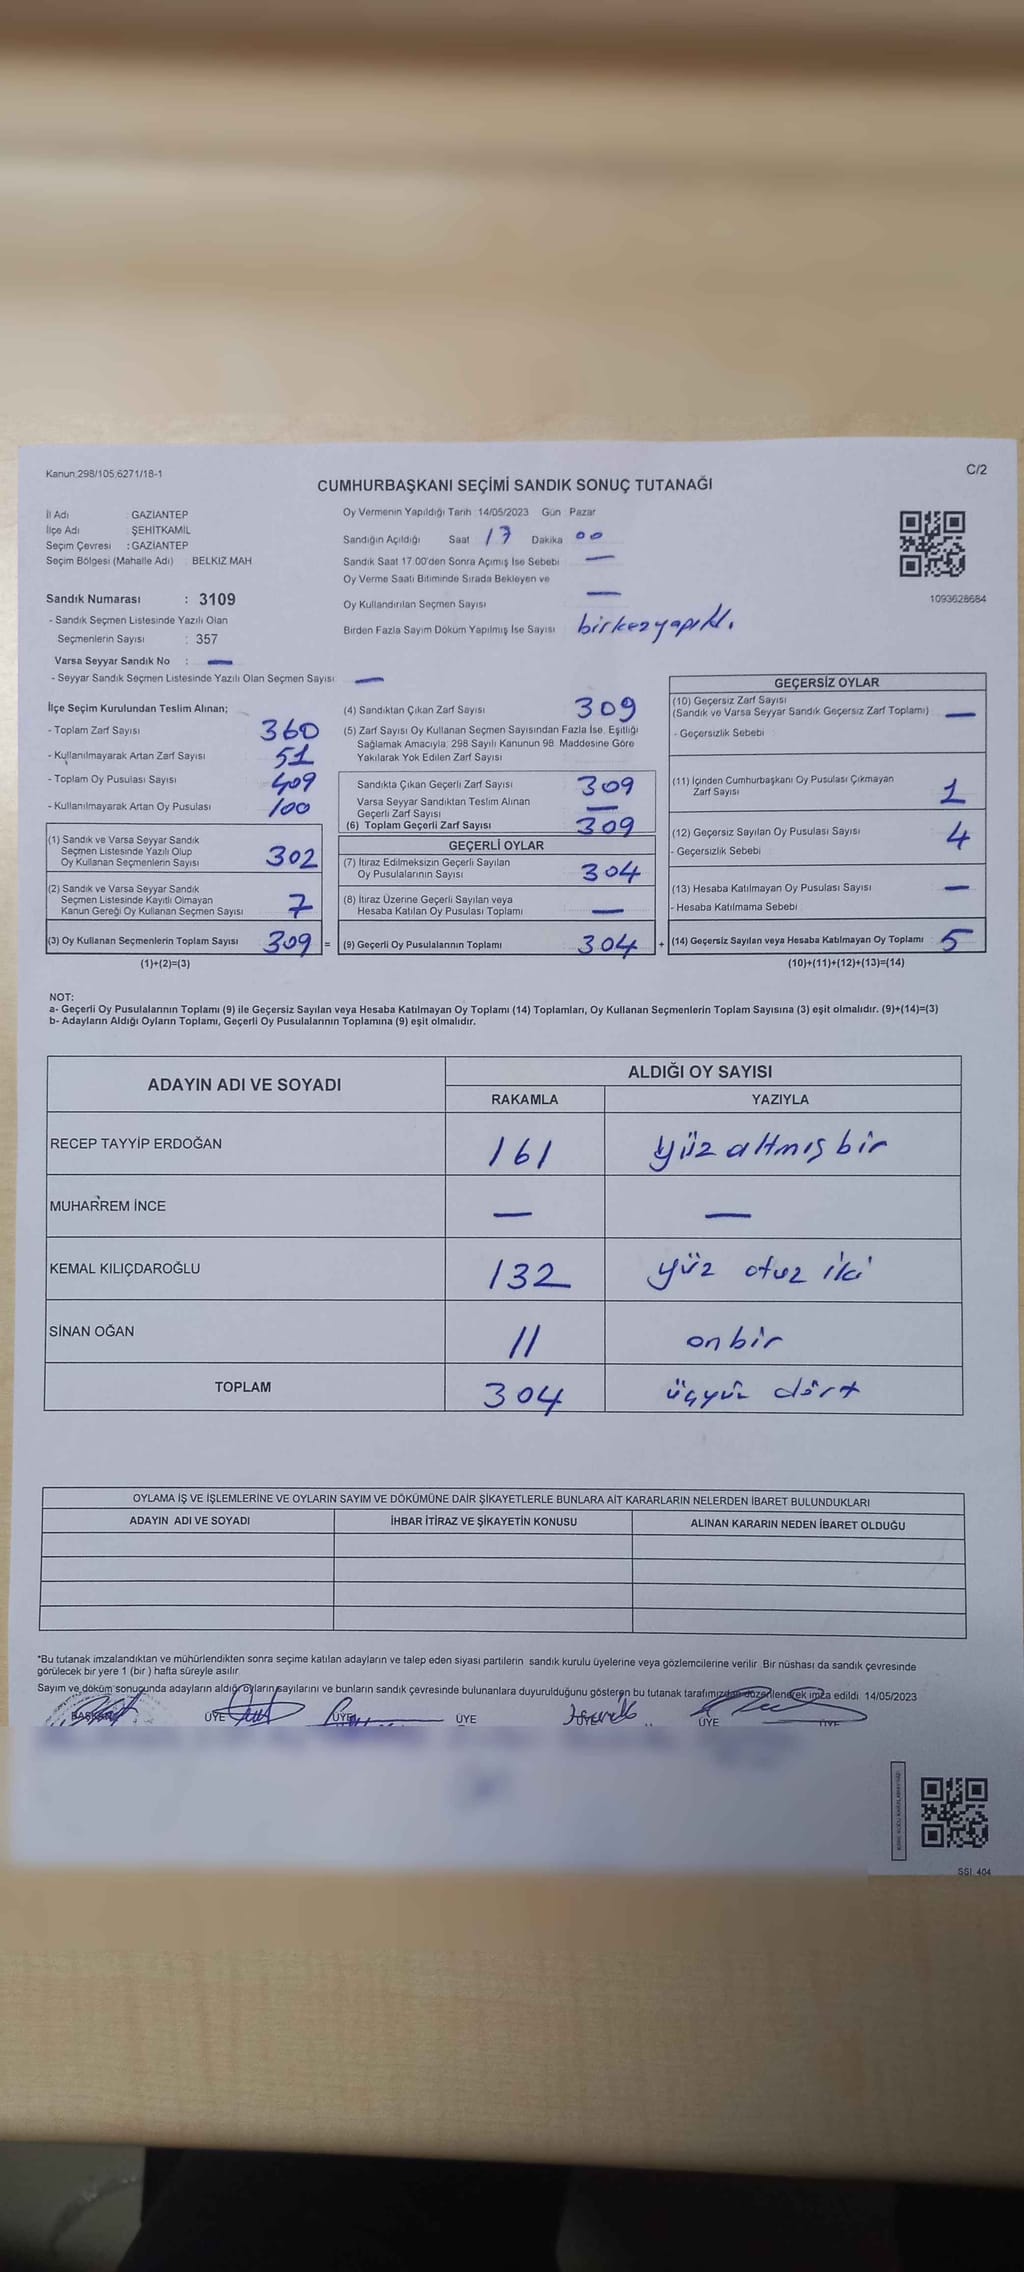 Kanun 298/105,6271/18-1
C/2
CUMHURBAŞKANI SEÇİMİ SANDIK SONUÇ TUTANAĞI
İl Adı : GAZİANTEP
İlçe Adı : ŞEHİTKAMİL
Seçim Çevresi : GAZİANTEP
Seçim Bölgesi (Mahalle Adı) BELKIZ MAH
Sandık Numarası : 3109
- Sandık Seçmen Listesinde Yazılı Olan
Seçmenlerin Sayısı : 357
Varsa Seyyar Sandık No : —
- Seyyar Sandık Seçmen Listesinde Yazılı Olan Seçmen Sayısı —
Oy Vermenin Yapıldığı Tarih 14/05/2023 Gün Pazar
Sandığın Açıldığı Saat 17 Dakika 00
Sandık Saat 17.00'den Sonra Açımış İse Sebebi —
Oy Verme Saati Bitiminde Sırada Bekleyen ve
Oy Kullandırılan Seçmen Sayısı —
Birden Fazla Sayım Döküm Yapılmış İse Sayısı bir kez yapıldı.
1093628684
İlçe Seçim Kurulundan Teslim Alınan;
- Toplam Zarf Sayısı 360
- Kullanılmayarak Artan Zarf Sayısı 51
- Toplam Oy Pusulası Sayısı 409
- Kullanılmayarak Artan Oy Pusulası 100
(1) Sandık ve Varsa Seyyar Sandık
Seçmen Listesinde Yazılı Olup
Oy Kullanan Seçmenlerin Sayısı 302
(2) Sandık ve Varsa Seyyar Sandık
Seçmen Listesinde Kayıtlı Olmayan
Kanun Gereği Oy Kullanan Seçmen Sayısı 7
(3) Oy Kullanan Seçmenlerin Toplam Sayısı 309 =
(1)+(2)=(3)
(4) Sandıktan Çıkan Zarf Sayısı 309
(5) Zarf Sayısı Oy Kullanan Seçmen Sayısından Fazla İse, Eşitliği
Sağlamak Amacıyla, 298 Sayılı Kanunun 98. Maddesine Göre
Yakılarak Yok Edilen Zarf Sayısı
Sandıkta Çıkan Geçerli Zarf Sayısı 309
Varsa Seyyar Sandıktan Teslim Alınan
Geçerli Zarf Sayısı —
(6) Toplam Geçerli Zarf Sayısı 309
GEÇERLİ OYLAR
(7) İtiraz Edilmeksizin Geçerli Sayılan
Oy Pusulalarının Sayısı 304
(8) İtiraz Üzerine Geçerli Sayılan veya
Hesaba Katılan Oy Pusulası Toplamı —
(9) Geçerli Oy Pusulalarının Toplamı 304 +
GEÇERSİZ OYLAR
(10) Geçersiz Zarf Sayısı
(Sandık ve Varsa Seyyar Sandık Geçersiz Zarf Toplamı) —
- Geçersizlik Sebebi
(11) İçinden Cumhurbaşkanı Oy Pusulası Çıkmayan
Zarf Sayısı 1
(12) Geçersiz Sayılan Oy Pusulası Sayısı 4
- Geçersizlik Sebebi
(13) Hesaba Katılmayan Oy Pusulası Sayısı —
- Hesaba Katılmama Sebebi
(14) Geçersiz Sayılan veya Hesaba Katılmayan Oy Toplamı 5
(10)+(11)+(12)+(13)=(14)
NOT:
a- Geçerli Oy Pusulalarının Toplamı (9) ile Geçersiz Sayılan veya Hesaba Katılmayan Oy Toplamı (14) Toplamları, Oy Kullanan Seçmenlerin Toplam Sayısına (3) eşit olmalıdır. (9)+(14)=(3)
b- Adayların Aldığı Oyların Toplamı, Geçerli Oy Pusulalarının Toplamına (9) eşit olmalıdır.
ADAYIN ADI VE SOYADI ALDIĞI OY SAYISI
RAKAMLA YAZIYLA
RECEP TAYYİP ERDOĞAN 161 yüz altmış bir
MUHARREM İNCE — —
KEMAL KILIÇDAROĞLU 132 yüz otuz iki
SİNAN OĞAN 11 on bir
TOPLAM 304 üçyüz dört
OYLAMA İŞ VE İŞLEMLERİNE VE OYLARIN SAYIM VE DÖKÜMÜNE DAİR ŞİKAYETLERLE BUNLARA AİT KARARLARIN NELERDEN İBARET BULUNDUKLARI
ADAYIN ADI VE SOYADI İHBAR İTİRAZ VE ŞİKAYETİN KONUSU ALINAN KARARIN NEDEN İBARET OLDUĞU
*Bu tutanak imzalandıktan ve mühürlendikten sonra seçime katılan adayların ve talep eden siyasi partilerin sandık kurulu üyelerine veya gözlemcilerine verilir Bir nüshası da sandık çevresinde
görülecek bir yere 1 (bir ) hafta süreyle asılır
Sayım ve döküm sonucunda adayların aldığı oyların sayılarını ve bunların sandık çevresinde bulunanlara duyurulduğunu gösteren bu tutanak tarafımızdan düzenlenerek imza edildi 14/05/2023
BAŞKAN ÜYE ÜYE ÜYE ÜYE ÜYE ÜYE
SSI 404